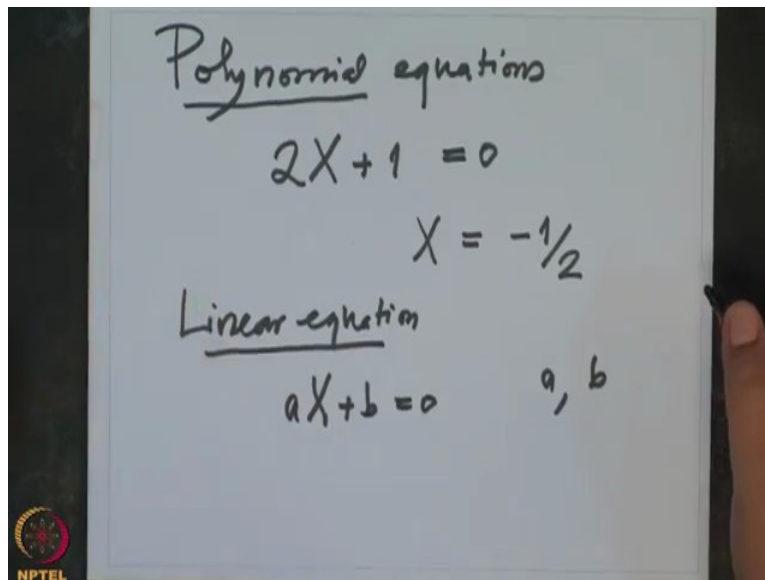 Polynomial equations
2X + 1 = 0
X = -1/2
Linear equation
aX + b = 0 a, b
NPTEL